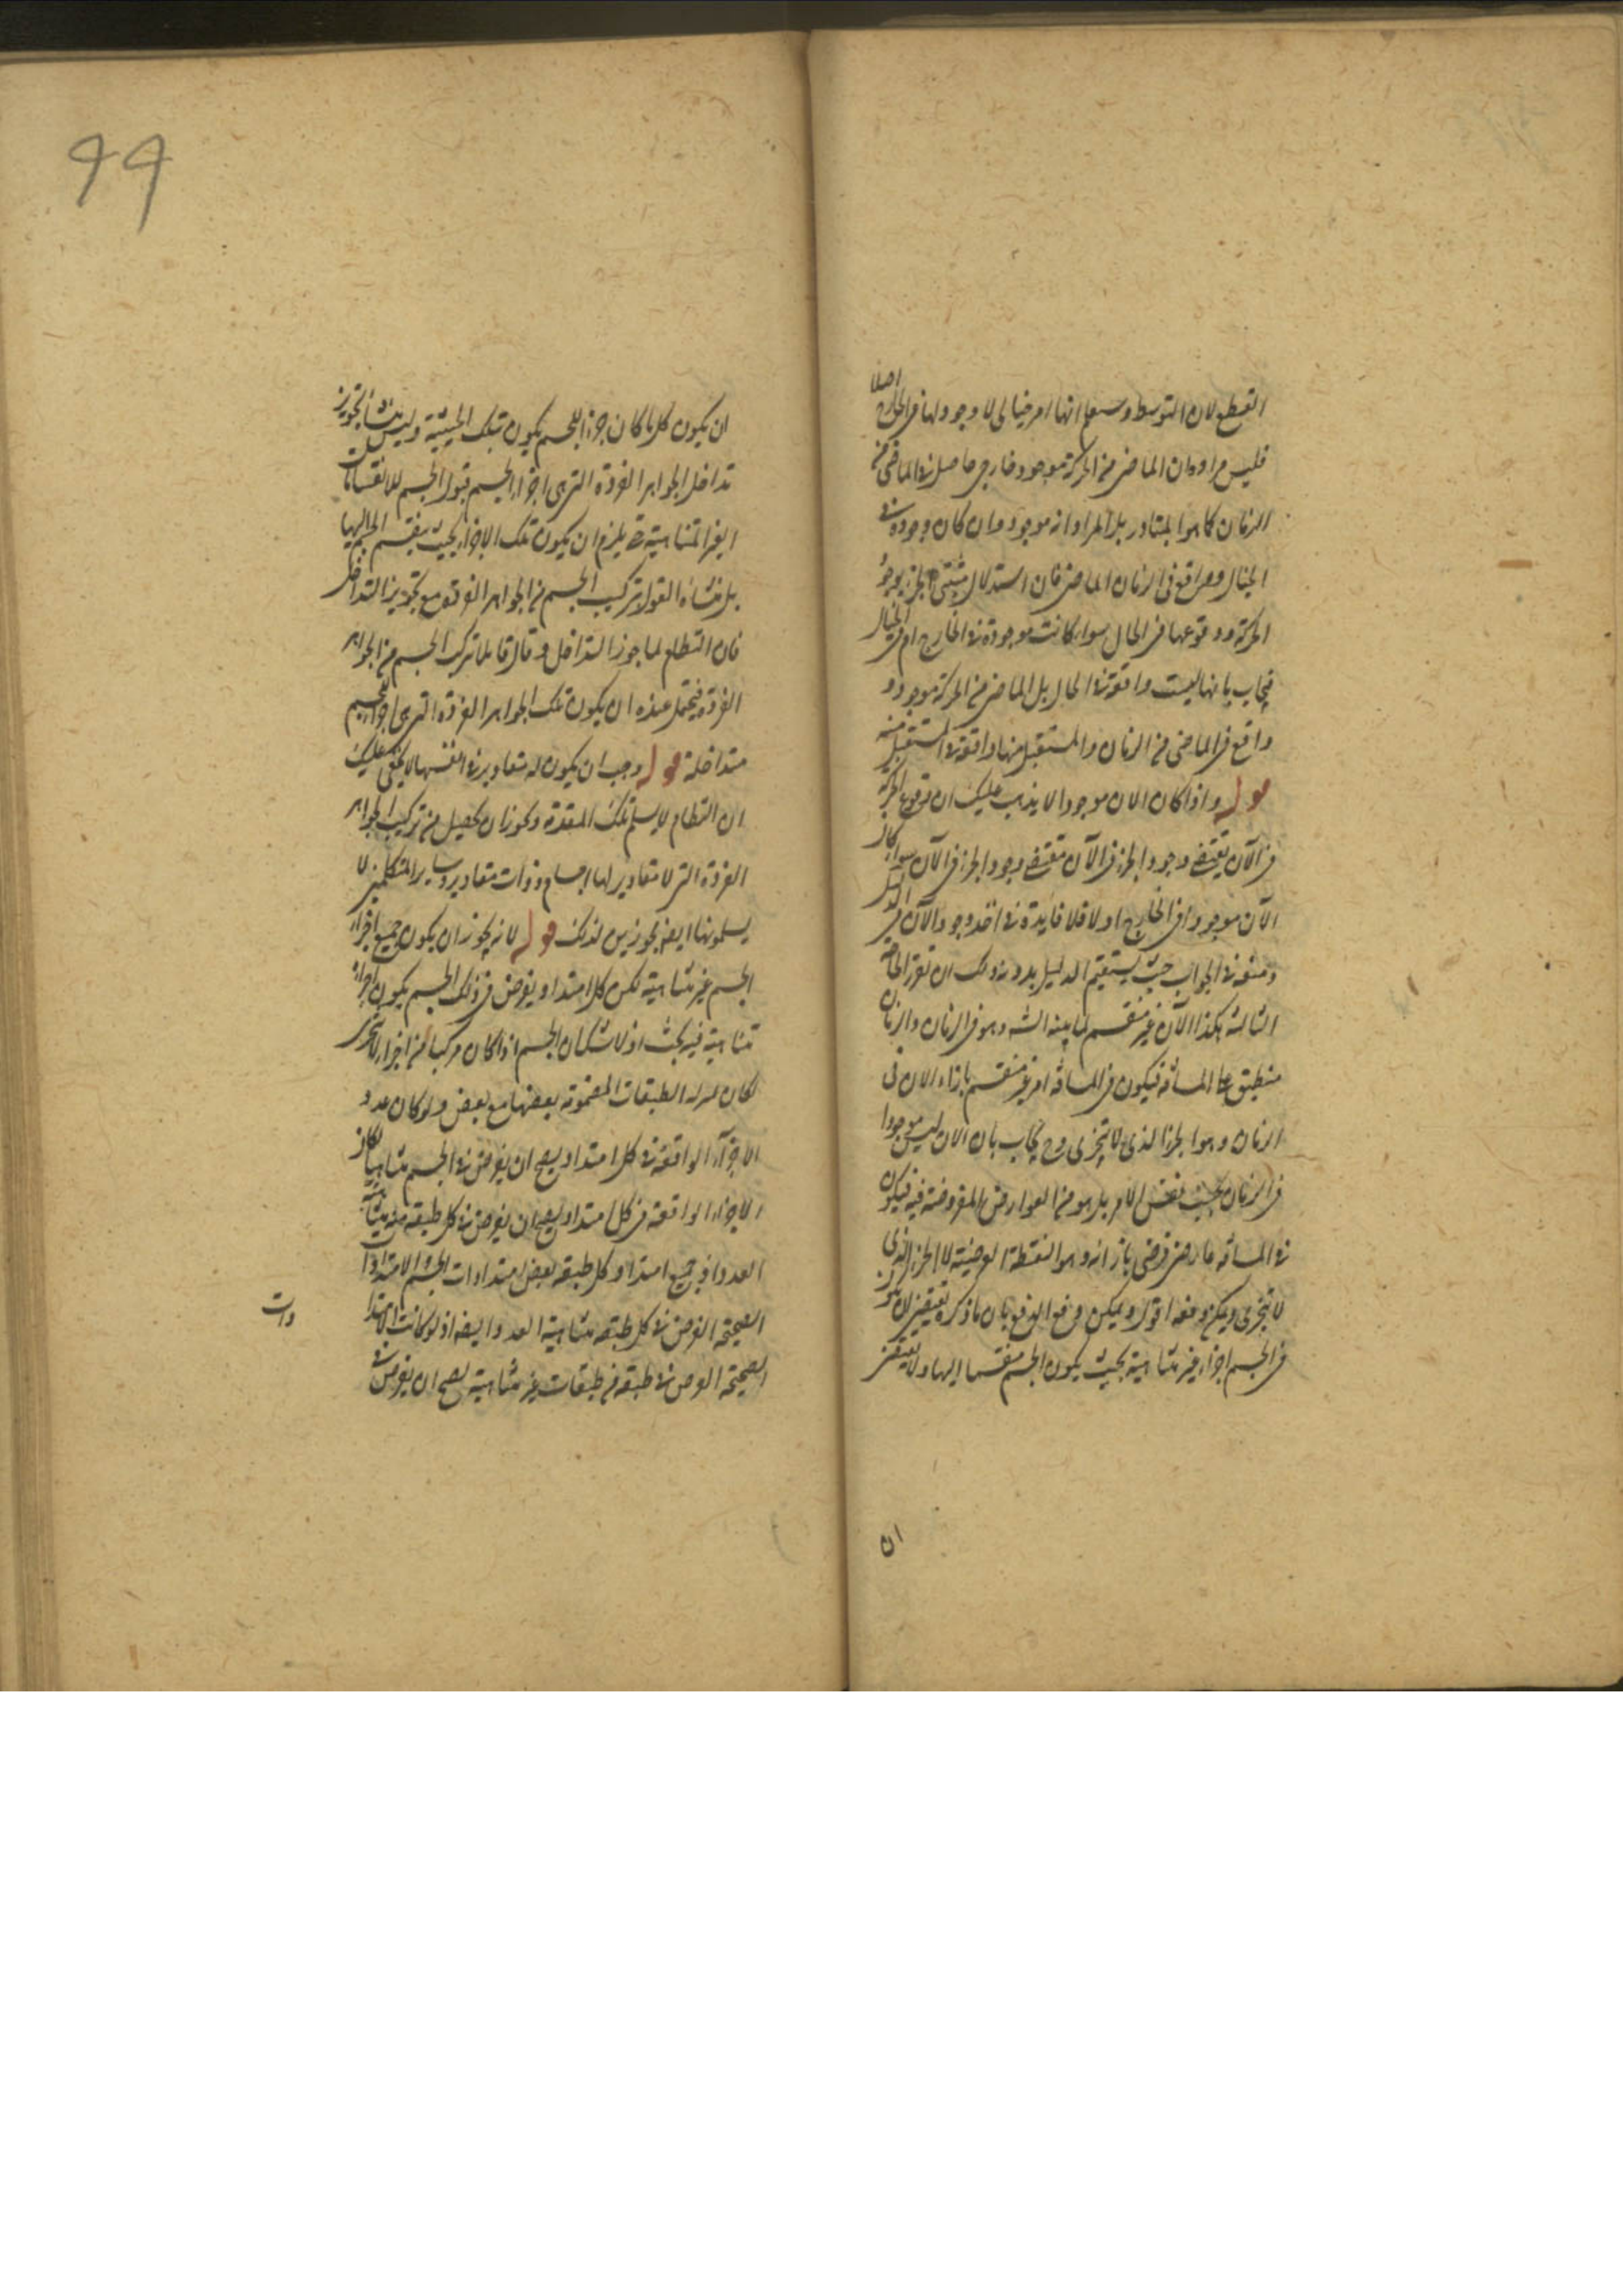 القطع لان التوسط وسيعلم انها امر خيالى لا وجود لها فى الخارج اصلا
فليس مراده ان الماضى من الحركة موجود خارجى حاصل فى الماضى من
الزمان كما هو المتبادر بل المراد انه موجود وان كان وجوده فى
الخيال وواقع فى الزمان الماضى فان استدلال مثبتى الجزء بوجود
الحركة ووقوعها فى الحال سواء كانت موجودة فى الخارج ام فى الخيال
فيجاب بانها ليست واقعة فى الحال بل الماضى من الحركة موجود و
واقع فى الماضى من الزمان والمستقبل منها واقعة فى المستقبل منه
قوله واذا كان الان موجودا لا يذهب عليك ان وقوع الحركة
فى الآن يقتضى وجود الجزء فى الآن يقتضى وجود الجزء فى الآن سواء كان
الآن موجودا فى الخارج اولا فلا فايدة فى اخذ وجود الآن فى الدليل
ومنعه فى الجواب حيث يستقيم الدليل بدونه ولك ان تقرر المعارضة
الثالثة هكذا الآن غير منقسم لما بينه الشه وهو فى الزمان والزمان
منطبق على المسافة فيكون فى المسافة امر غير منقسم بازاء الان فى
الزمان وهو الجزء الذى لا يتجزى وح يجاب بان الان ليس موجودا
فى الزمان بحسب نفس الامر بل هو من العوارض المفروضة فيه فيكون
فى المسافة عارض فرضى بازائه وهو النقطة العرضية لا الجزء الذى
لا يتجزى ويمكن دفعه اقول ويمكن دفع الدفع بان ما ذكره يقتضى ان يكون
فى الجسم اجزاء غير متناهية بحيث يكون الجسم منقسما اليها ولا يقتضى
ان
ان يكون كل ما كان جزء الجسم يكون بتلك الحيثية وليس منشأ تجويز
تداخل الجواهر الفردة التى هى اجزاء الجسم قبول الجسم للانقسامات
الغير المتناهية حتى يلزم ان يكون تلك الاجزاء بحيث ينقسم الجسم اليها
بل منشاه القول بتركيب الجسم من الجواهر الفردة مع تجويز التداخل
فان النظام لما جوز التداخل وقال قائلا بتركيب الجسم من الجواهر
الفردة فيحتمل عنده ان يكون تلك الجواهر الفردة التى هى اجزاء الجسم
متداخلة قوله وجب ان يكون له مقادير فى انفسها لا يخفى عليك
ان النظام لا يسلم تلك المقدمة ويجوز ان يحصل من تركيب الجواهر
الفردة التى لا مقادير لها اجسام ذوات مقادير وساير المتكلمين لا
يسلمونها ايضا مجوزين لذلك قوله لانه يجوز ان يكون جميع اجزاء
الجسم غير متناهية لكن كل امتداد يفرض فى ذلك الجسم يكون اجزاؤه
متناهية فيه بحث اذ لا شك ان الجسم اذا كان مركبا من اجزاء لا تتجزى
لكان له الطبقات المضمومة بعضها مع بعض ولو كان عدد
الاجزاء الواقعة فى كل امتداد يصح ان يفرض فى الجسم متناهيا لكان
الاجزاء الواقعة فى كل امتداد يصح ان يفرض فى كل طبقة منه متناهية
العدد اذ جميع امتداد كل طبقة بعض امتدادات الجسم الامتدادات
الصحيحة الفرض فى كل طبقة متناهية العدد وايضا اذ لو كانت الامتدا
دات
الصحيحة الفرض فى طبقة من طبقات غير متناهية يصح ان يفرض فى